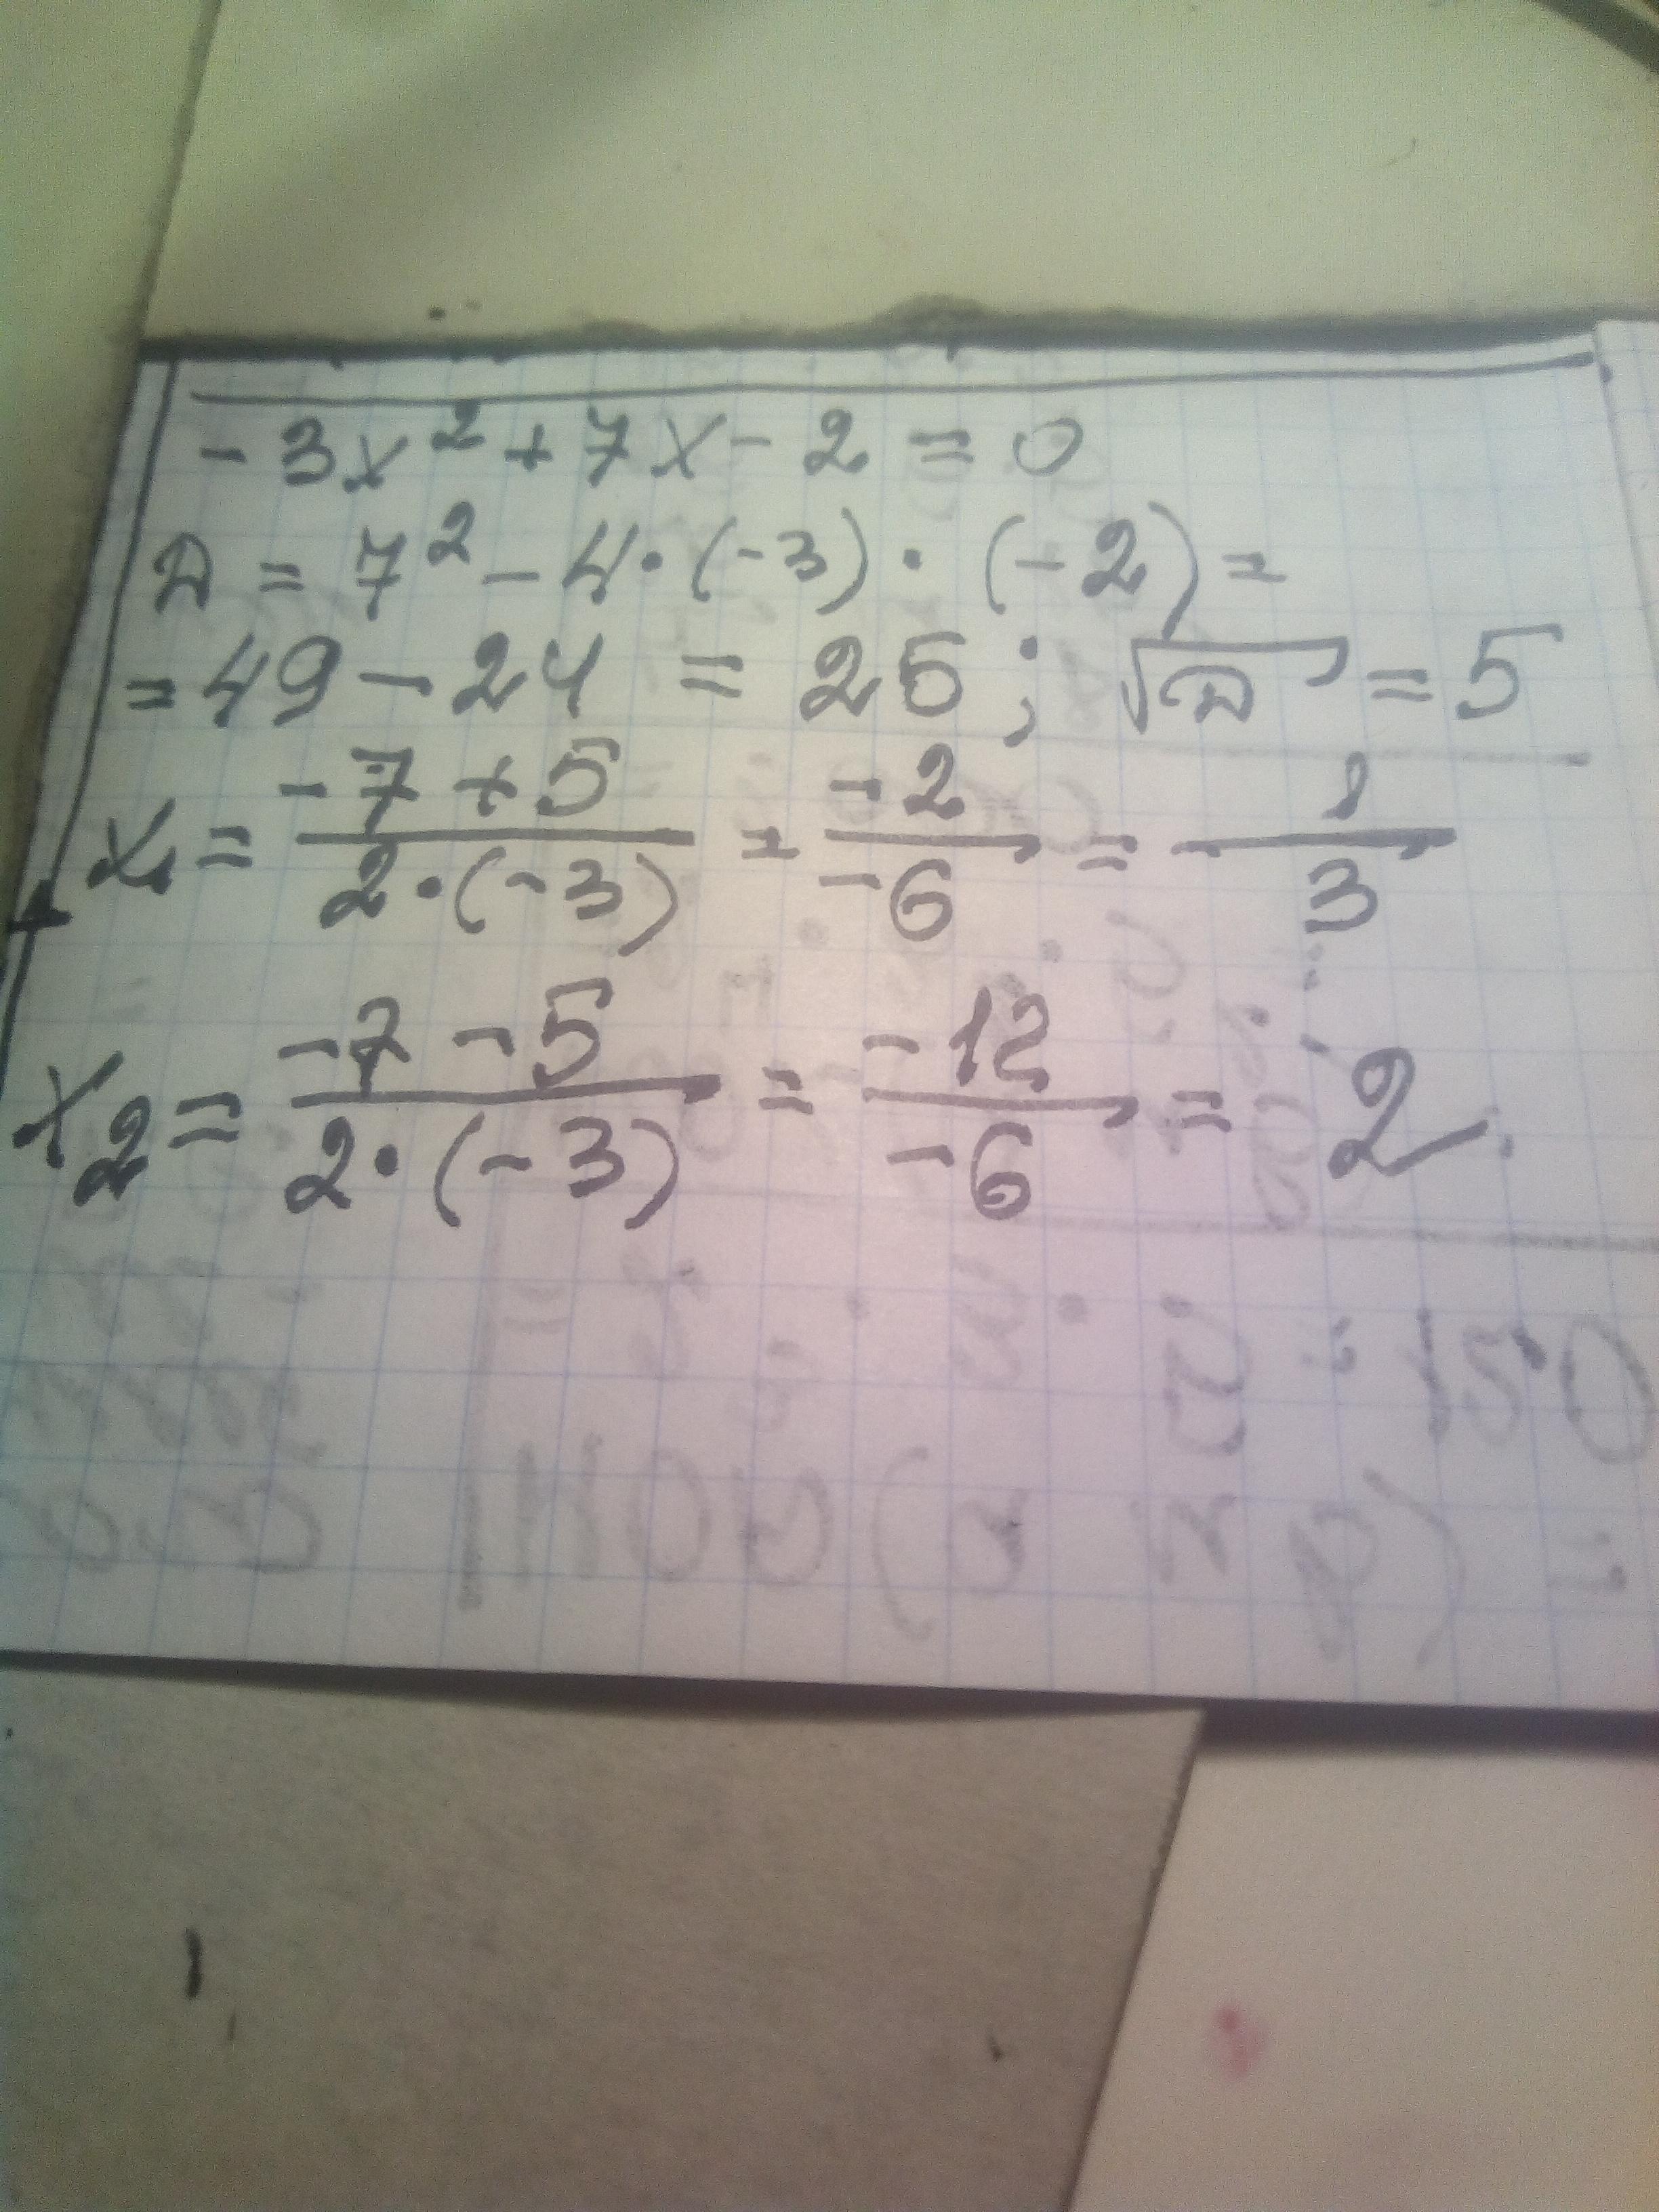 -3x² + 7x - 2 = 0
D = 7² - 4 · (-3) · (-2) =
= 49 - 24 = 25; √D = 5
x₁ = (-7 + 5)/(2 · (-3)) = (-2)/(-6) = 1/3
x₂ = (-7 - 5)/(2 · (-3)) = (-12)/(-6) = 2.